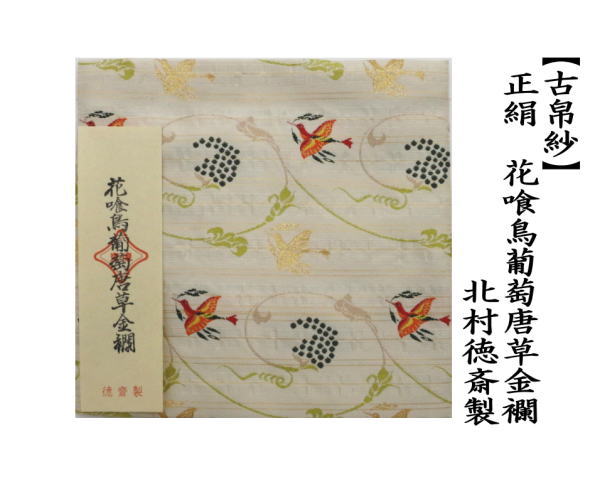 【古帛紗】
正絹 花喰鳥葡萄唐草金襴
北村徳斎製
花喰鳥葡萄唐草金襴
徳斎製